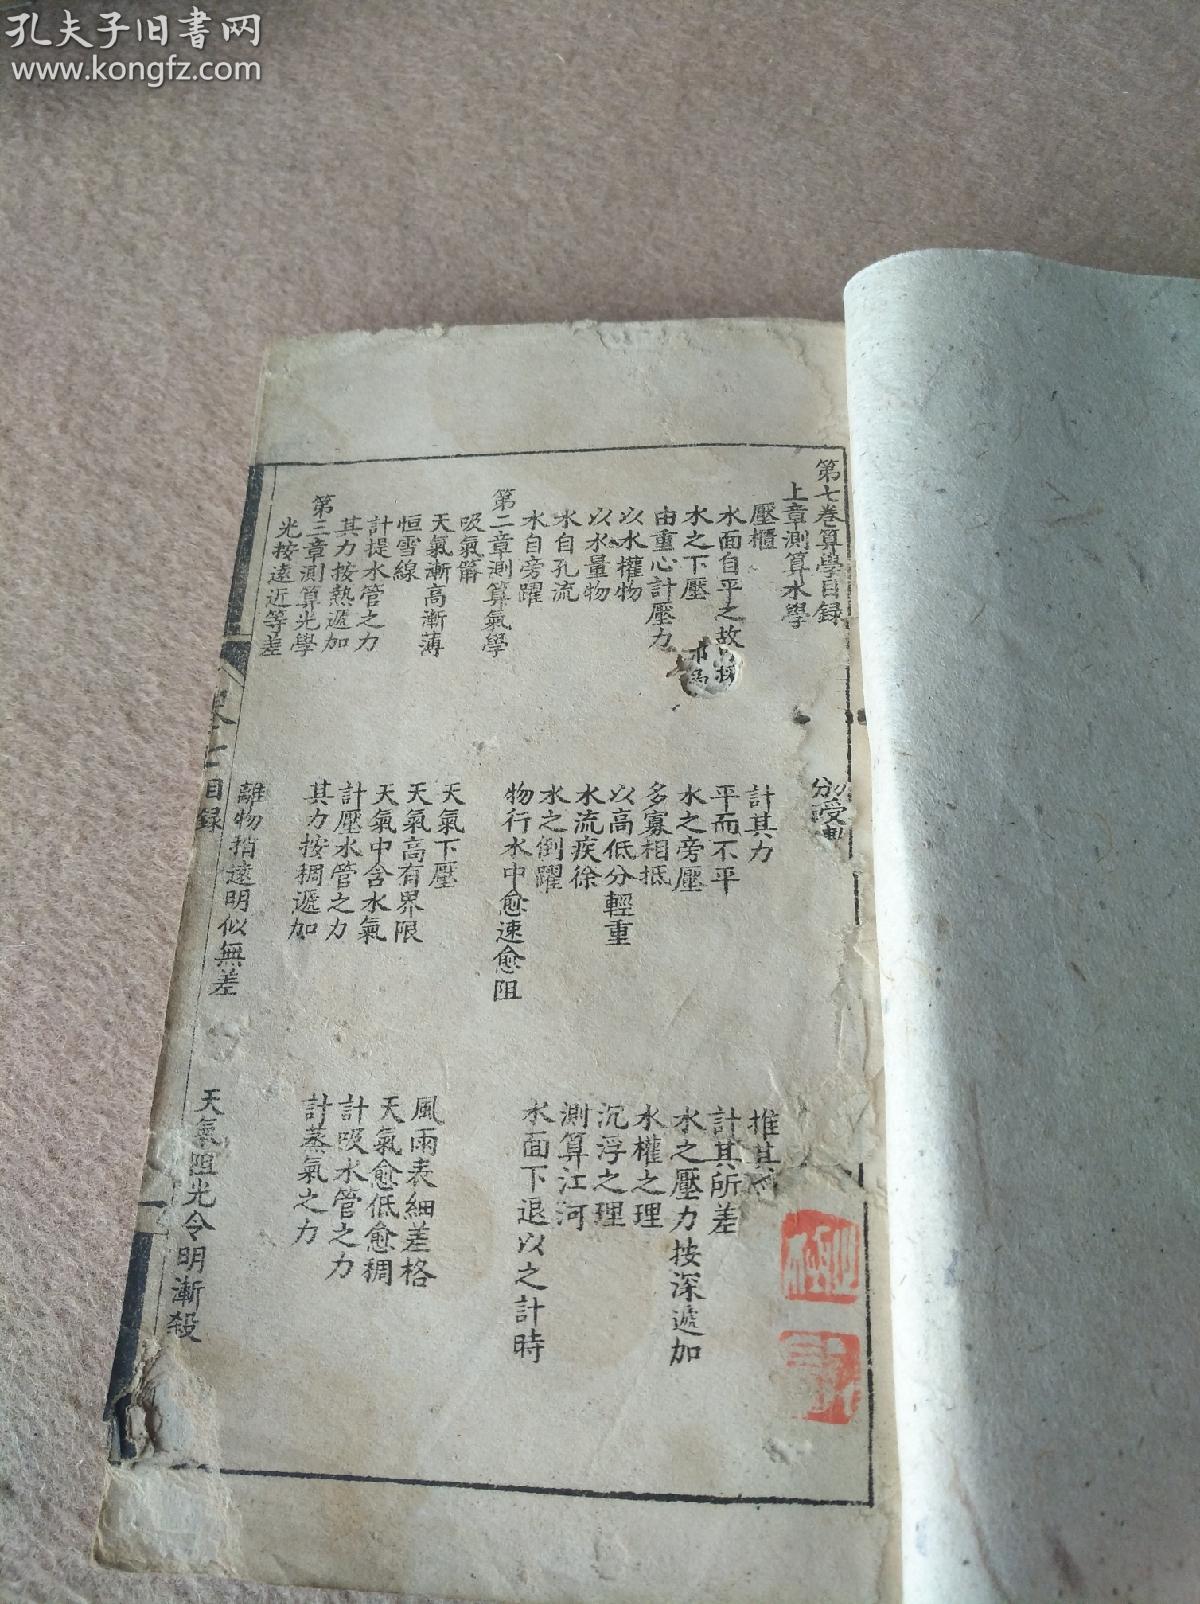 孔夫子旧書网
www.kongfz.com
第七卷算學目録
上章測算水學
壓櫃
分受
水面自平之故
計其力
推其
水之下壓
平而不平
計其所差
由重心計壓力
水之旁壓
水之壓力按深遞加
以水權物
多寡相抵
水權之理
以水量物
以高低分輕重
沉浮之理
水自孔流
水流疾徐
測算江河
水自旁躍
水之倒躍
水面下退以之計時
物行水中愈速愈阻
第二章測算氣學
吸氣筩
天氣下壓
風雨表細差格
天氣漸高漸薄
天氣高有界限
天氣愈低愈稠
恒雪線
天氣中含水氣
計吸水管之力
計提水管之力
計壓水管之力
計蒸氣之力
其力按熱遞加
其力按稠遞加
第三章測算光學
光按遠近等差
離物稍遠明似無差
天氣阻光令明漸殺
卷七目録